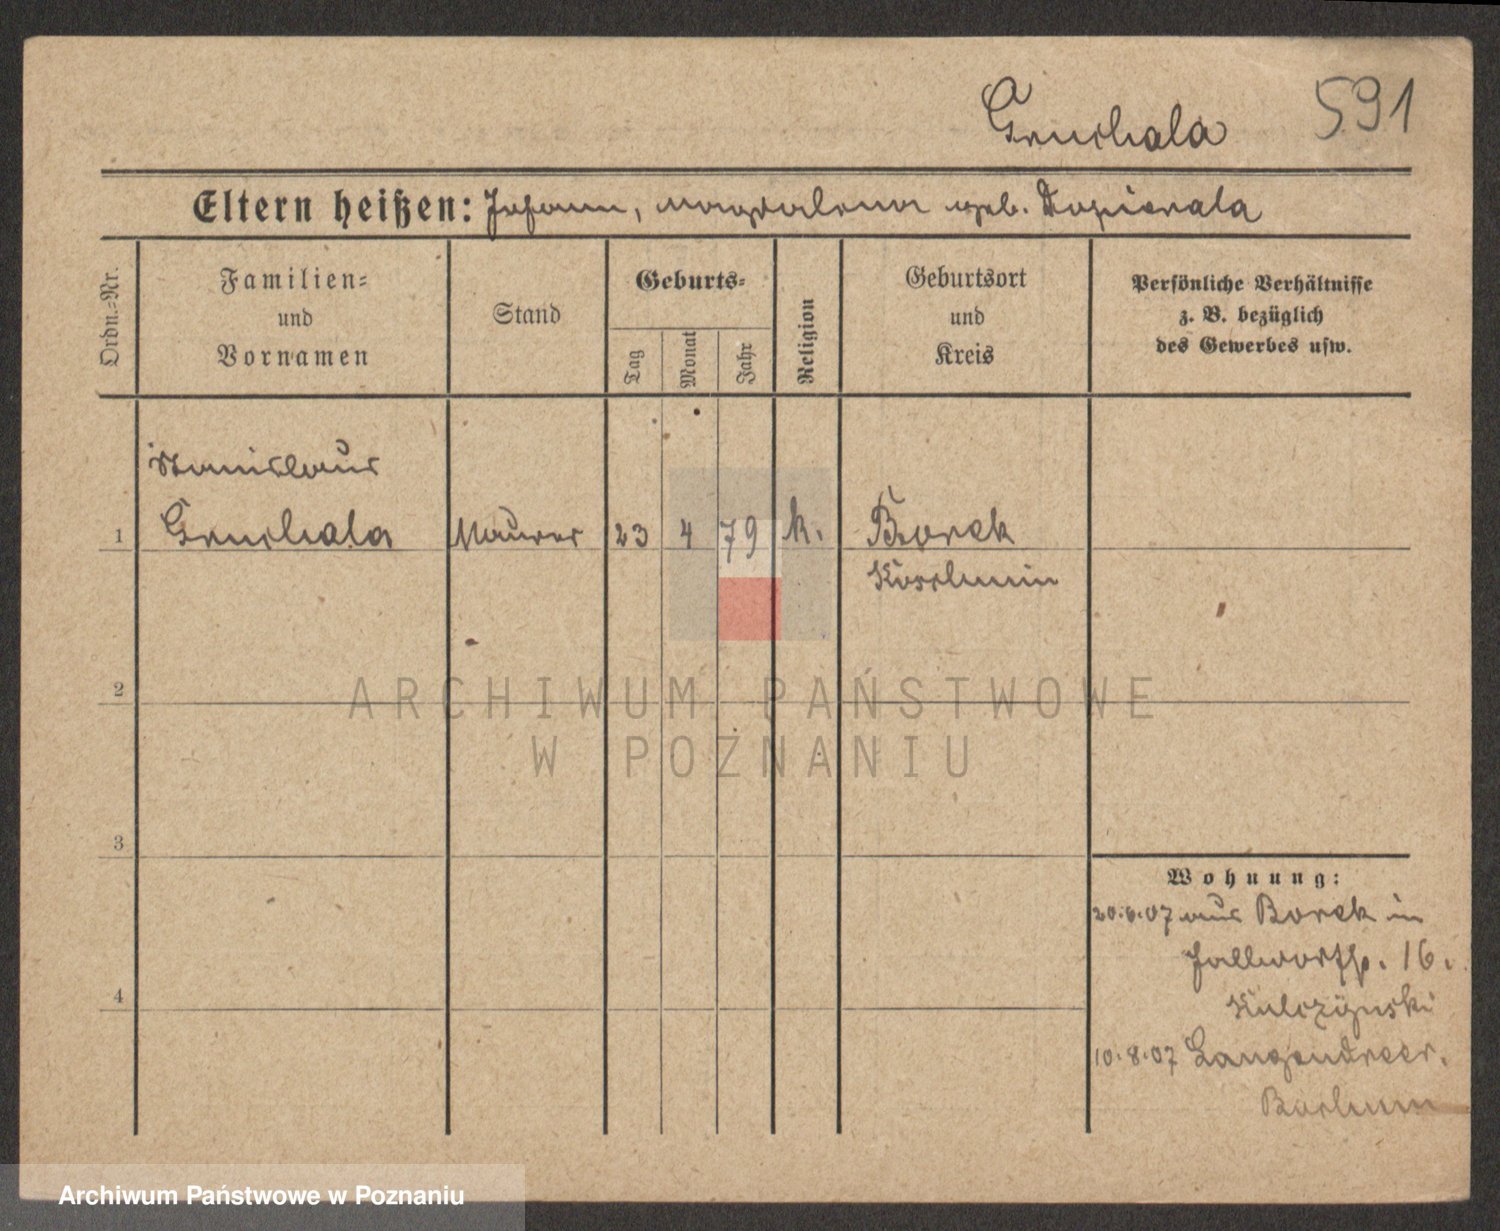 Gruchala 591
Eltern heißen: Johann, Magdalena geb. Dopierala
Ordn.-Nr.
Familien-
und
Vornamen
Stand
Geburts-
Tag
Monat
Jahr
Religion
Geburtsort
und
Kreis
Persönliche Verhältnisse
z. B. bezüglich
des Gewerbes usw.
Stanislaus
1 Gruchala Maurer 23 4 79 k. Borek
Koschmin
2
3
4
Wohnung:
20.6.07 aus Borek in
16.
Kulczynski
10.8.07 Langendreer.
Bochum
ARCHIWUM PAŃSTWOWE
W POZNANIU
Archiwum Państwowe w Poznaniu